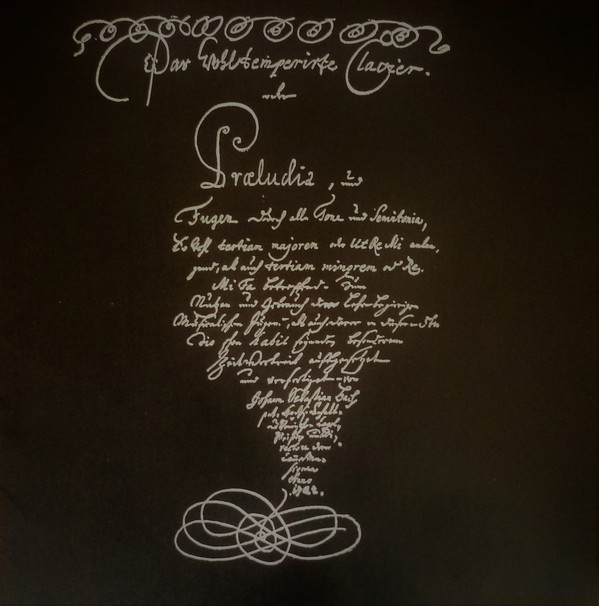 Das Wohltemperirte Clavier.
oder
Præludia, und
Fugen durch alle Tone und Semitonia,
tertiam majorem oder Ut Re Mi
als auch tertiam minorem oder Re
Mi Fa betreffend. Zum
Nutzen und Gebrauch der Lehrbegierigen
Musicalischen Jugend, als auch derer in diesem stu
dio schon habil seyenden besonderem
Zeitvertreib auffgesetzet
und verfertiget von
Johann Sebastian Bach.
Anno
1722.